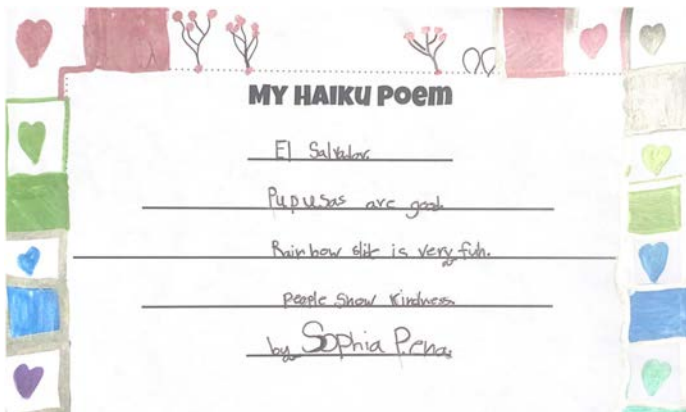 MY HAIKU POEM
El Salvador.
Pupusas are good.
Rainbow slit is very fun.
People show kindness.
by Sophia Pena